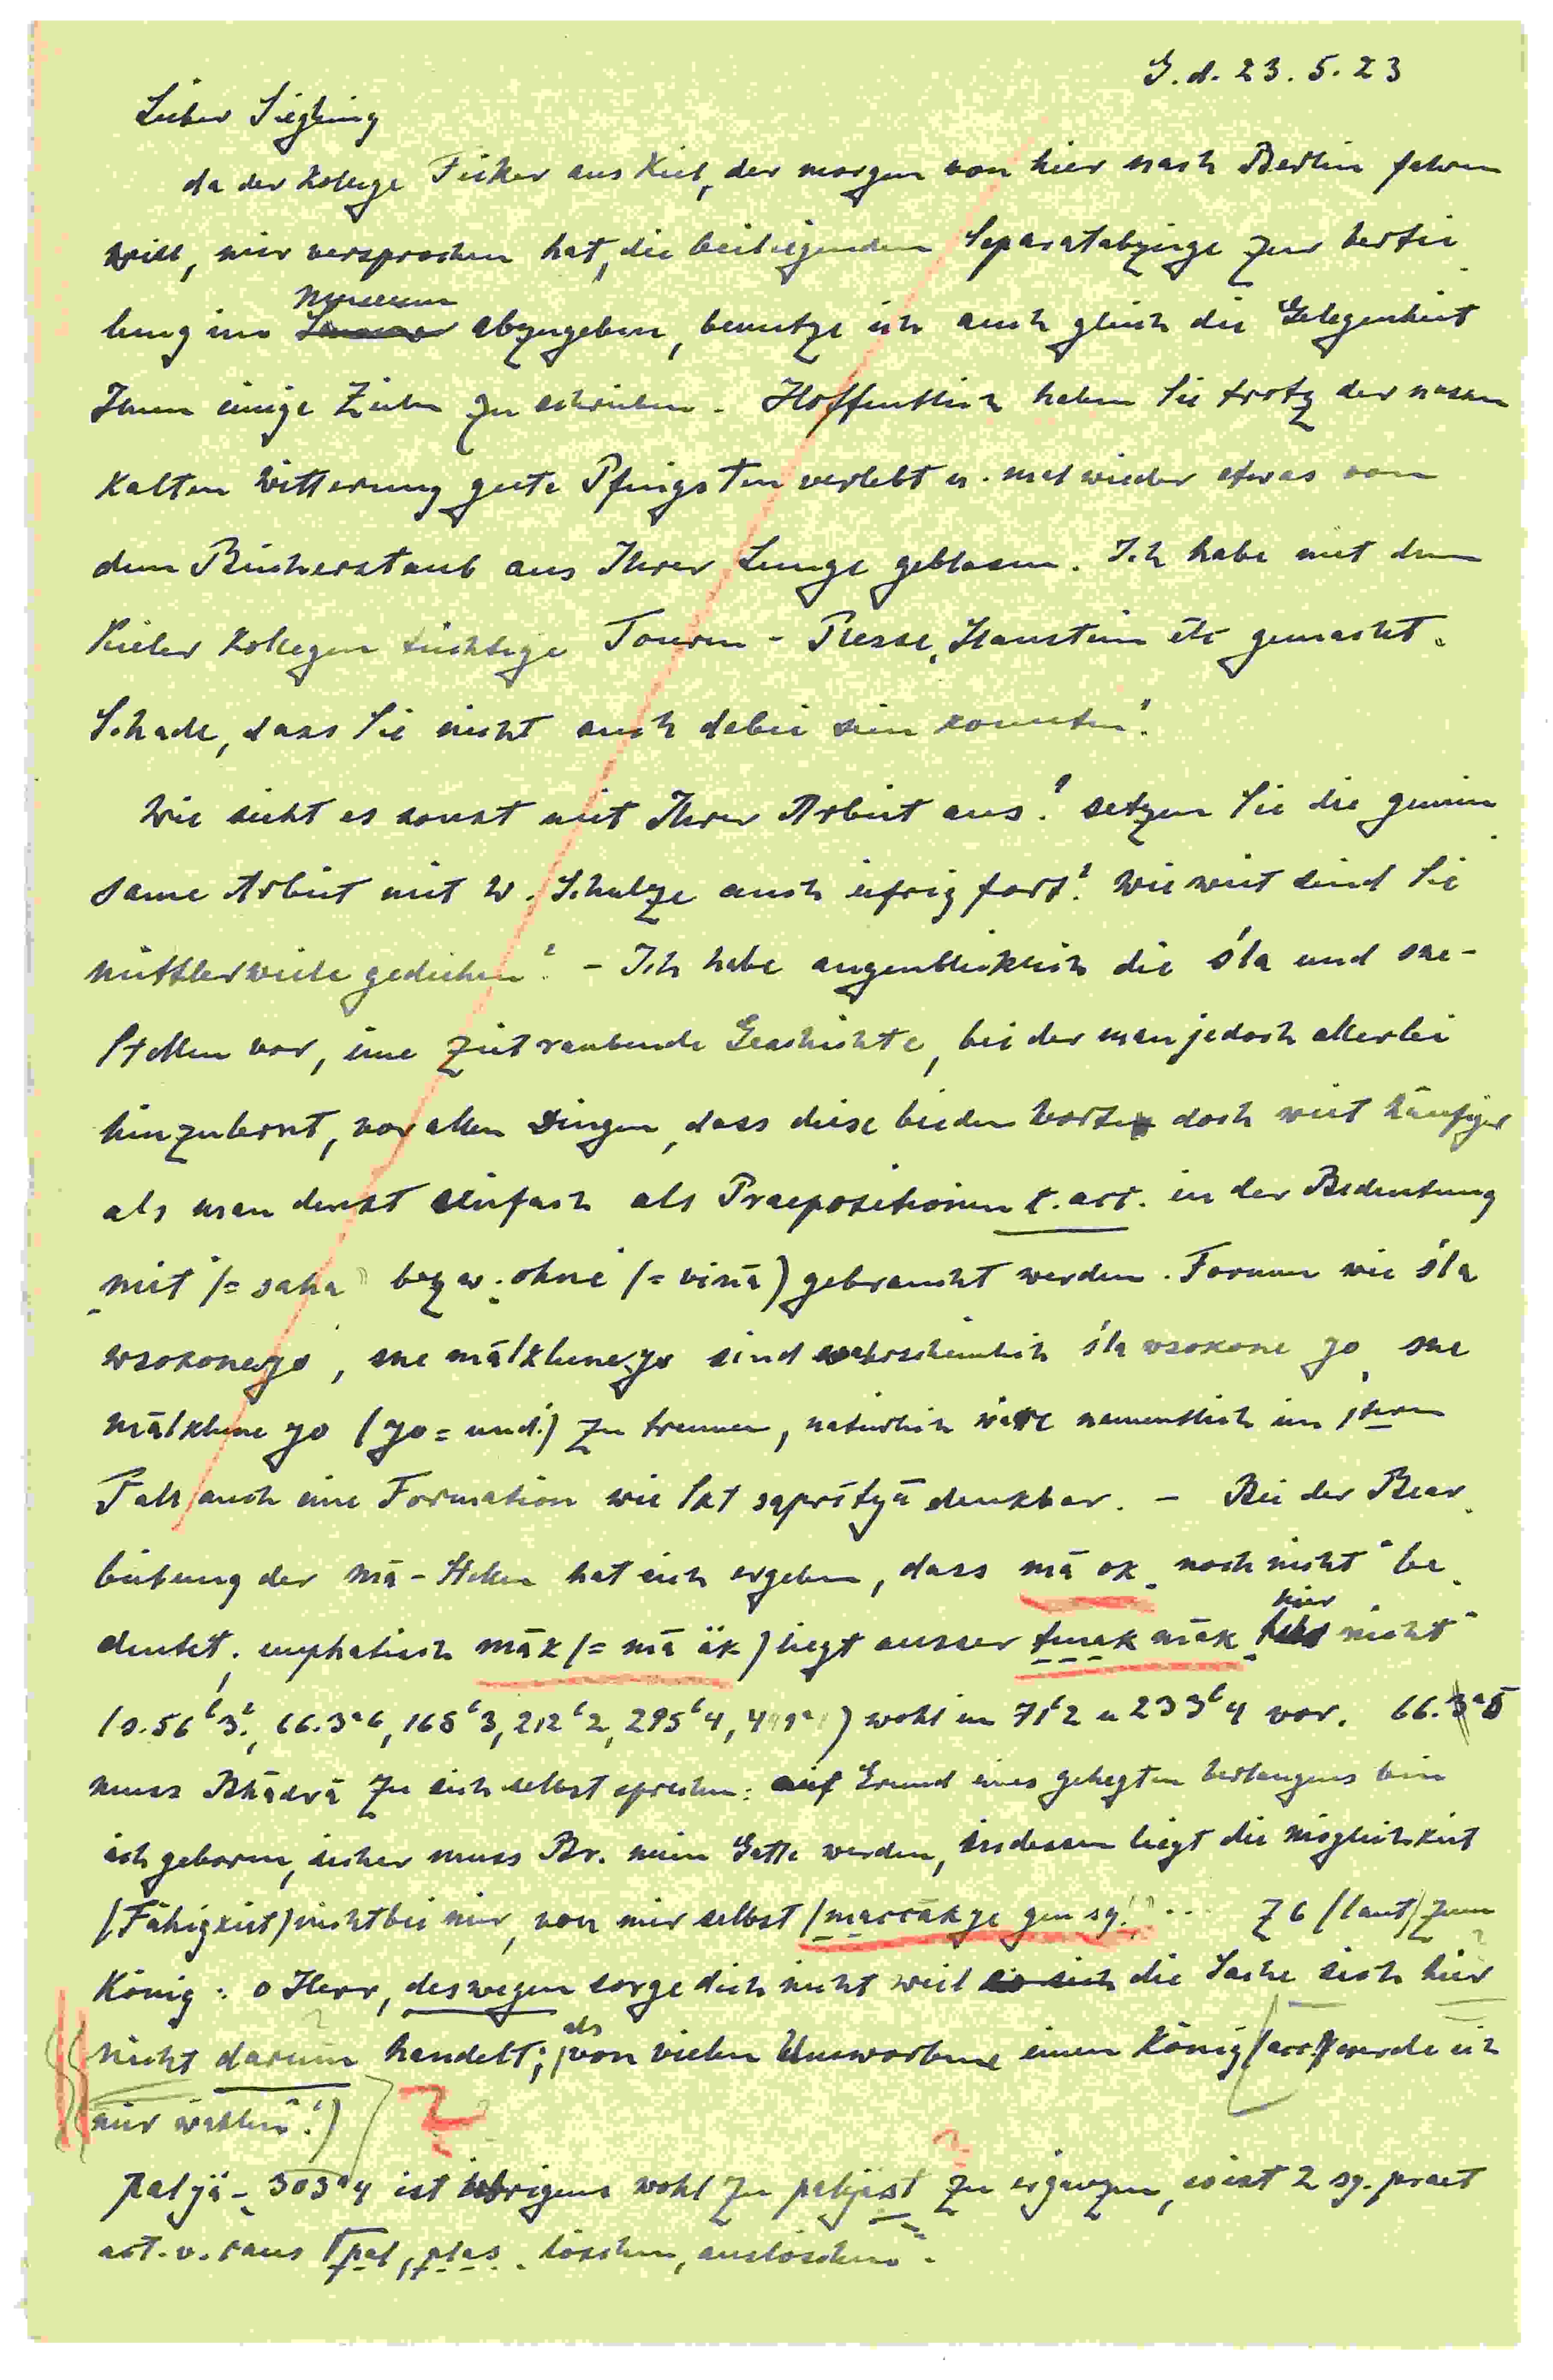 G. d. 23. 5. 23
Lieber Siegling
da der Kollege Ficker aus Kiel, der morgen von hier nach Berlin fahren
will, mir versprochen hat, die beiliegenden Separatabzüge zur Vertei
lung im Museum abzugeben, benutze ich auch gleich die Gelegenheit
Ihnen einige Zeilen zu schreiben. Hoffentlich haben Sie trotz der nassen
kalten Witterung gute Pfingsten verlebt u. mal wieder etwas von
dem Bücherstaub aus Ihrer Lunge geblasen. Ich habe mit dem
Kieler Kollegen tüchtige Touren - Plesse, Hanstein etc gemacht.
Schade, dass Sie nicht auch dabei sein konnten!
Wie sieht es sonst mit Ihrer Arbeit aus? setzen Sie die gemein
same Arbeit mit W. Schulze auch eifrig fort? Wie weit sind Sie
mittlerweile gediehen? - Ich habe augenblicklich die śla und sne-
Stellen vor, eine zeitraubende Geschichte, bei der man jedoch allerlei
hinzulernt, vor allen Dingen, dass diese beiden Worte doch weit häufiger
als man denkt einfach als Praepositionen c. acc. in der Bedeutung
„mit" (= saha) bezw. „ohne" (= vinā) gebraucht werden. Formen wie śla
wsokoneyo, sne mālkluneyo sind wahrscheinlich śla wsokone yo, sne
mālklune yo (yo = und!) zu trennen, natürlich wäre namentlich im
Fall auch eine Formation wie Skt saprītyā denkbar. - Bei der Bear
beitung der mā-Stellen hat sich ergeben, dass mā ok „noch nicht" be
deutet, emphatisch māk (= mā āk) liegt ausser māk hier nicht"
(s. 56b3, 66.3a6, 168b3, 212b2, 295b4, ) wohl in 71b2 u 233b4 vor. 66.3a5
muss Bhādrā zu sich selbst sprechen: auf Grund eines gehegten Verlangens bin
ich geboren, sicher muss Br. mein Gatte werden, indessen liegt die Möglichkeit
(Fähigkeit) nicht bei mir, von mir selbst (maccākye gen sg.!) ... Z 6 (laut) zum
König: o Herr, deswegen sorge dich nicht weil die Sache sich hier
nicht darum handelt; als von vielen Umworbene einen König (acc.) werde ich
mir wählen!)
palyā- 303a4 ist übrigens wohl zu palyāṣt zu ergänzen, es ist 2 sg. praet
act. v. caus √pal, „löschen, auslöschen".